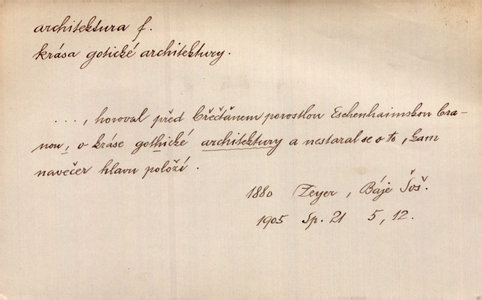 architektura f.
krása gotické architektury.
..., horoval před břečťanem porostlou Eschenhaimskou bra-
nou, o kráse gothické architektury a nestaral se o to, kam
navečer hlavu položí.
1880 Zeyer, Báje Šoš.
1905 Sp. 21 5, 12.